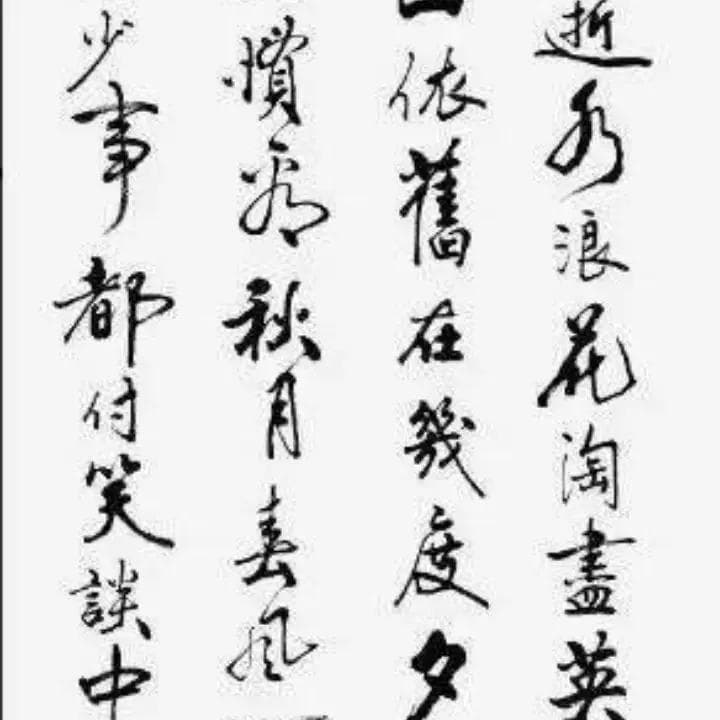 逝水浪花淘盡英
山依舊在幾度夕
慣看秋月春風
少事都付笑談中